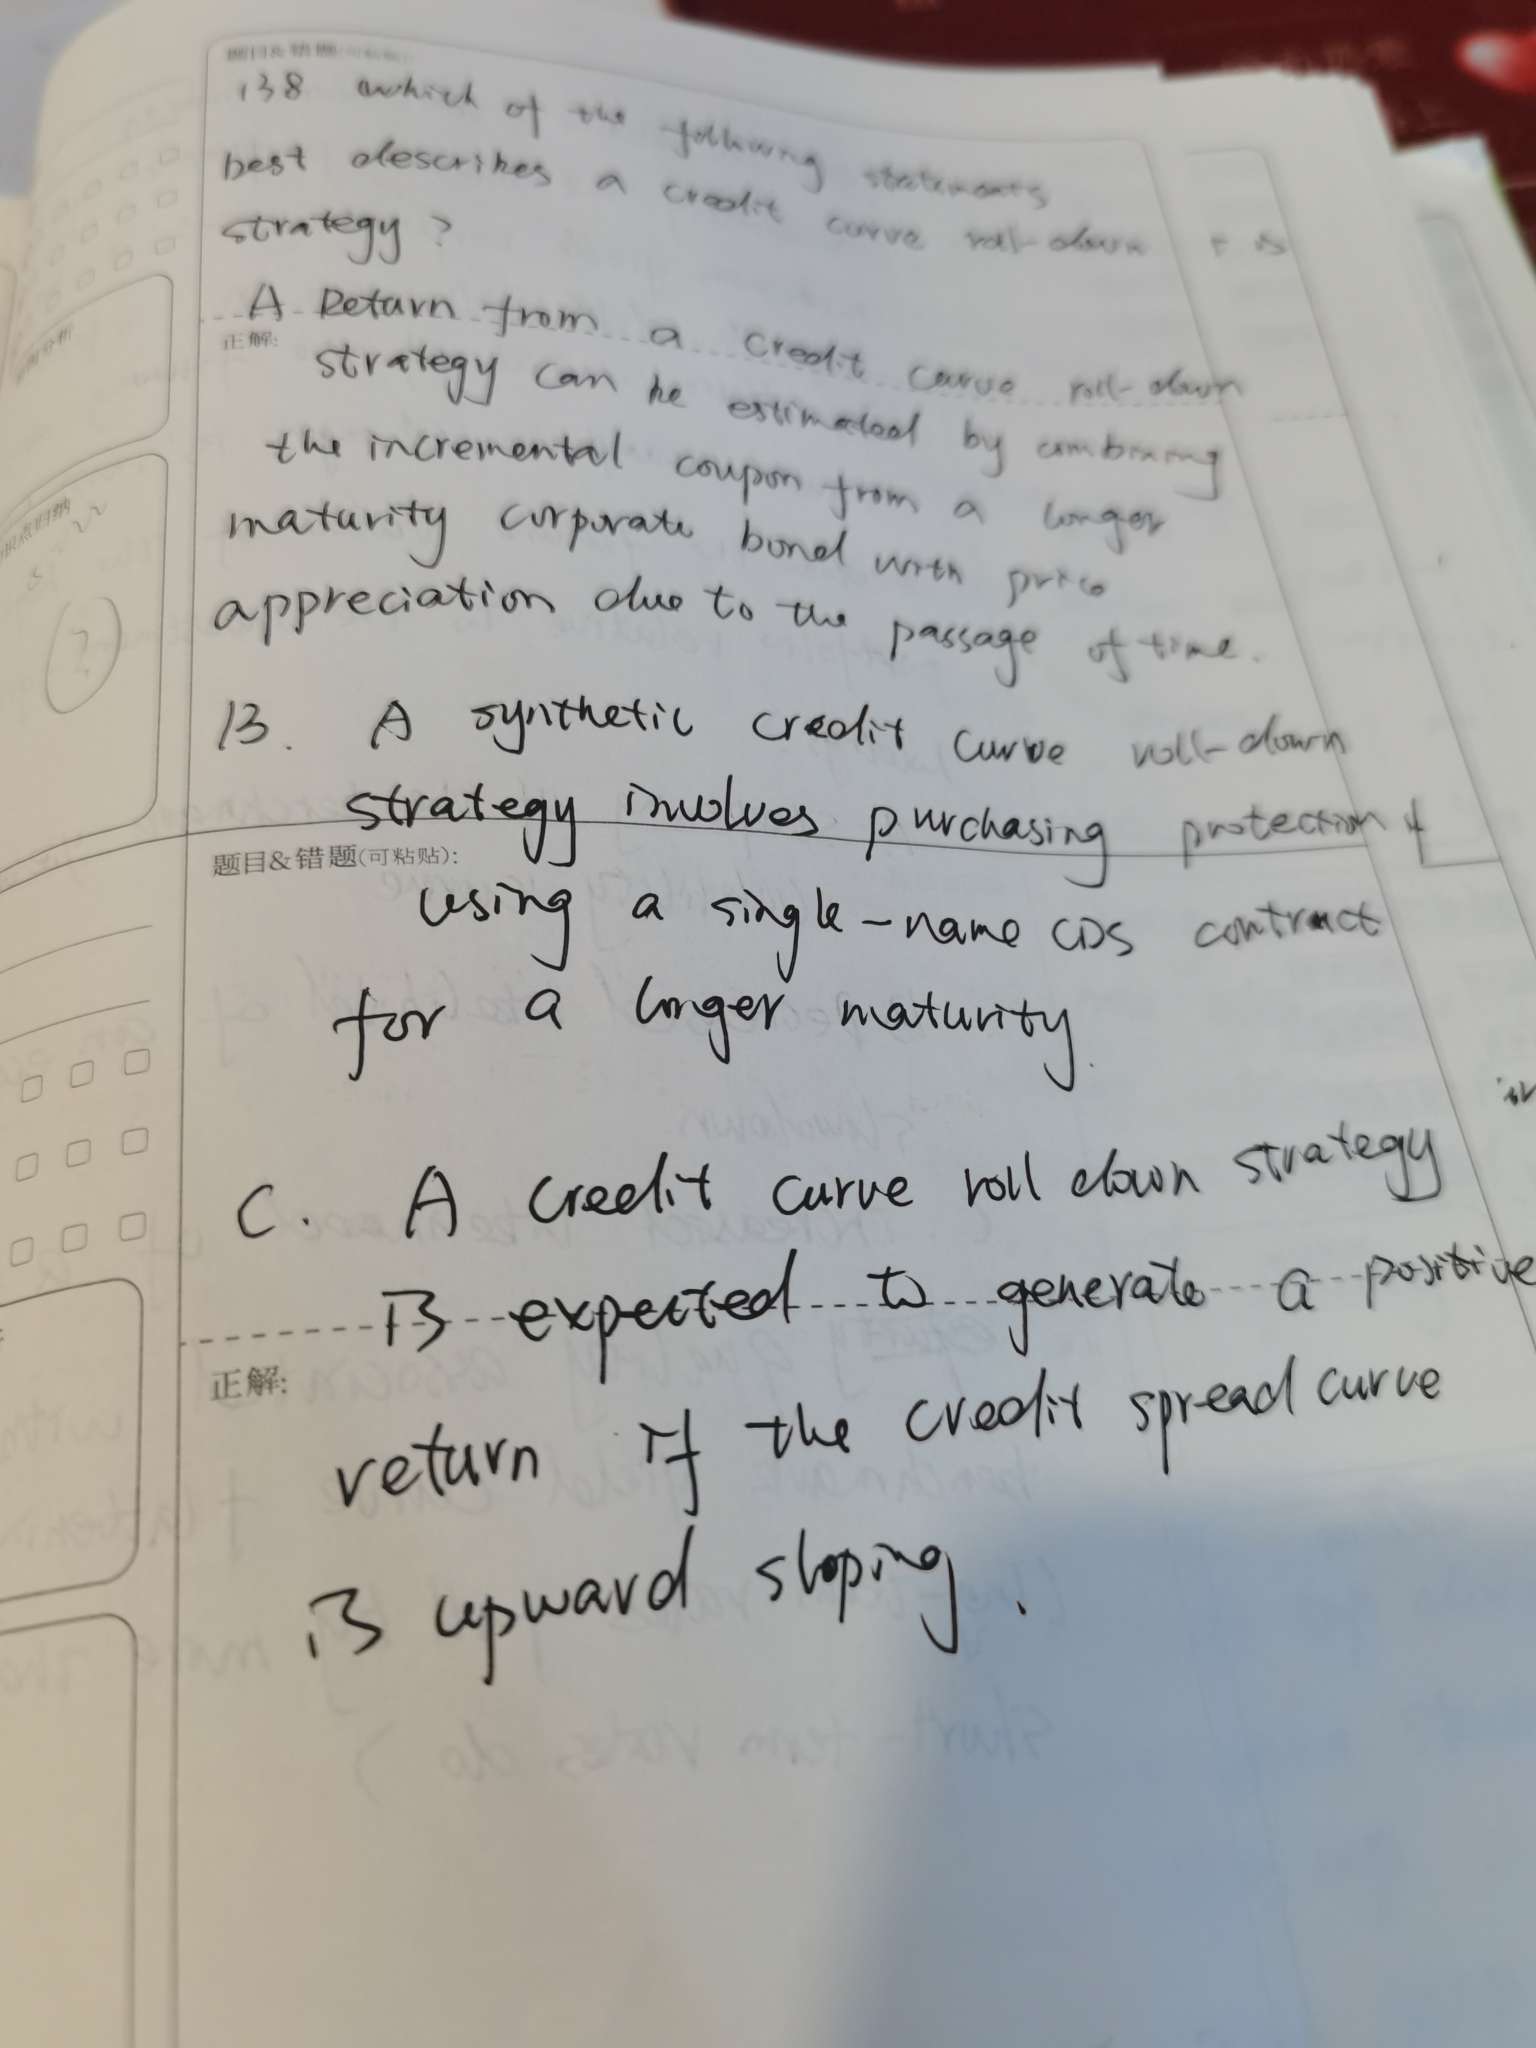 题目&错题(可粘贴):
138 which of the following statements
best describes a credit curve roll-down
strategy?
A Return from a credit curve roll-down
正解:
strategy can be estimated by combining
the incremental coupon from a longer
maturity corporate bond with price
appreciation due to the passage of time.
B. A synthetic credit curve roll-down
strategy involves purchasing protection
题目&错题(可粘贴):
using a single-name CDS contract
for a longer maturity.
C. A credit curve roll down strategy
is expected to generate a positive
正解:
return if the credit spread curve
is upward sloping.